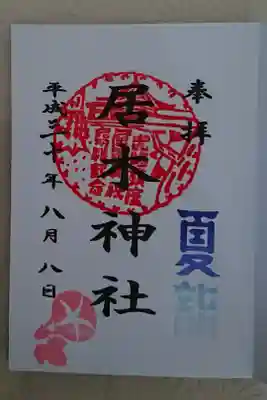 奉拝
夏詣
居木神社
平成三十年八月八日